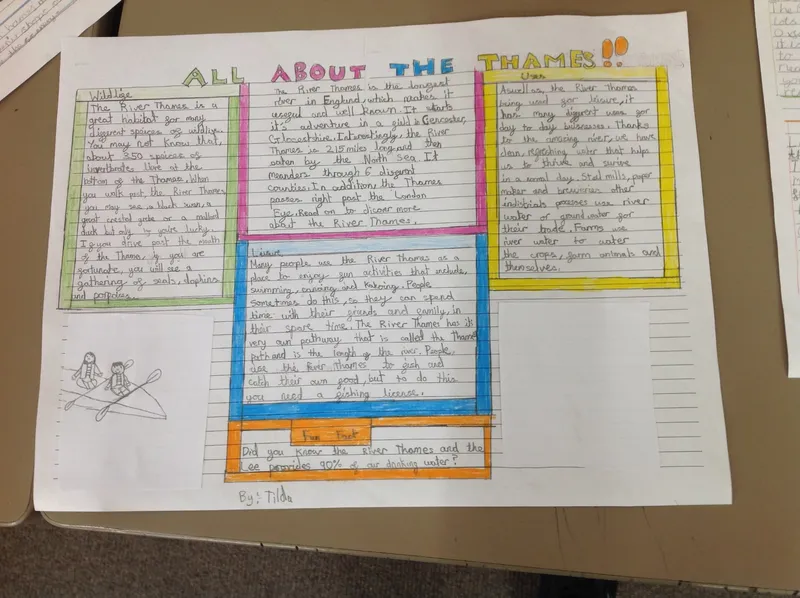 ALL ABOUT THE THAMES!!
Wildlife
The River Thames is a
great habitat for many
different spaices of wildlive.
You may not know that,
about 350 spaices of
invertibrates live at the
bottom of the Thames. When
you walk past the River Thames
you may see a black swan, a
great crested grebe or a mallard
duck but only if you're lucky.
If you drive past the mouth
of the Thames, if you are
fortunate, you will see a
gathering of seals, dolphins
and porpoises.
The River Thames is the longest
river in England, which makes it
useful and well known. It starts
it's adventure in a field in
Thames is 215 miles long and then
eaten by the North Sea. It
meanders through 6 different
counties. In addition the Thames
passes right past the London
Eye. Read on to discover more
about the River Thames.
Uses
Aswell as, the River Thames
being used for leisure, it
has many different uses for
day to day businesses. Thanks
to the amazing river, we have
clean, refreshing water that helps
us to thrive and survive
in a normal day. Steel mills, paper
maker and breweries other
industrials processes use river
water or ground water for
their trade. Farms use
river water to water
the crops, farm animals and
themselves.
Many people use the River Thames as a
place to enjoy fun activities that include,
swimming, canoing and Kakoing. People
sometimes do this, so they can spend
time with their friends and family, in
their spare time. The River Thames has it's
very own pathway that is called the Thames
path and is the length of the river. People
use the River Thames to fish and
catch their own food, but to do this
you need a fishing license.
Fun Fact
Did you know the River Thames and the
Lee provides 90% of our drinking water?
By: Tilda